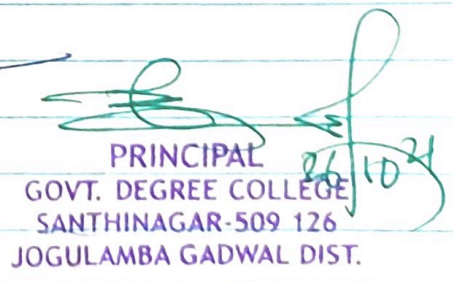 PRINCIPAL
26/10/21
GOVT. DEGREE COLLEGE
SANTHINAGAR-509 126
JOGULAMBA GADWAL DIST.